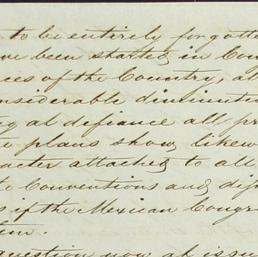 to be entirely forgotte
been started in Cou
ces of the Country, a
onsiderable diminuti
g at defiance all pr
plans show likew
racter attached to all
to Conventions and dip
if the Mexican Congr
question now at issu